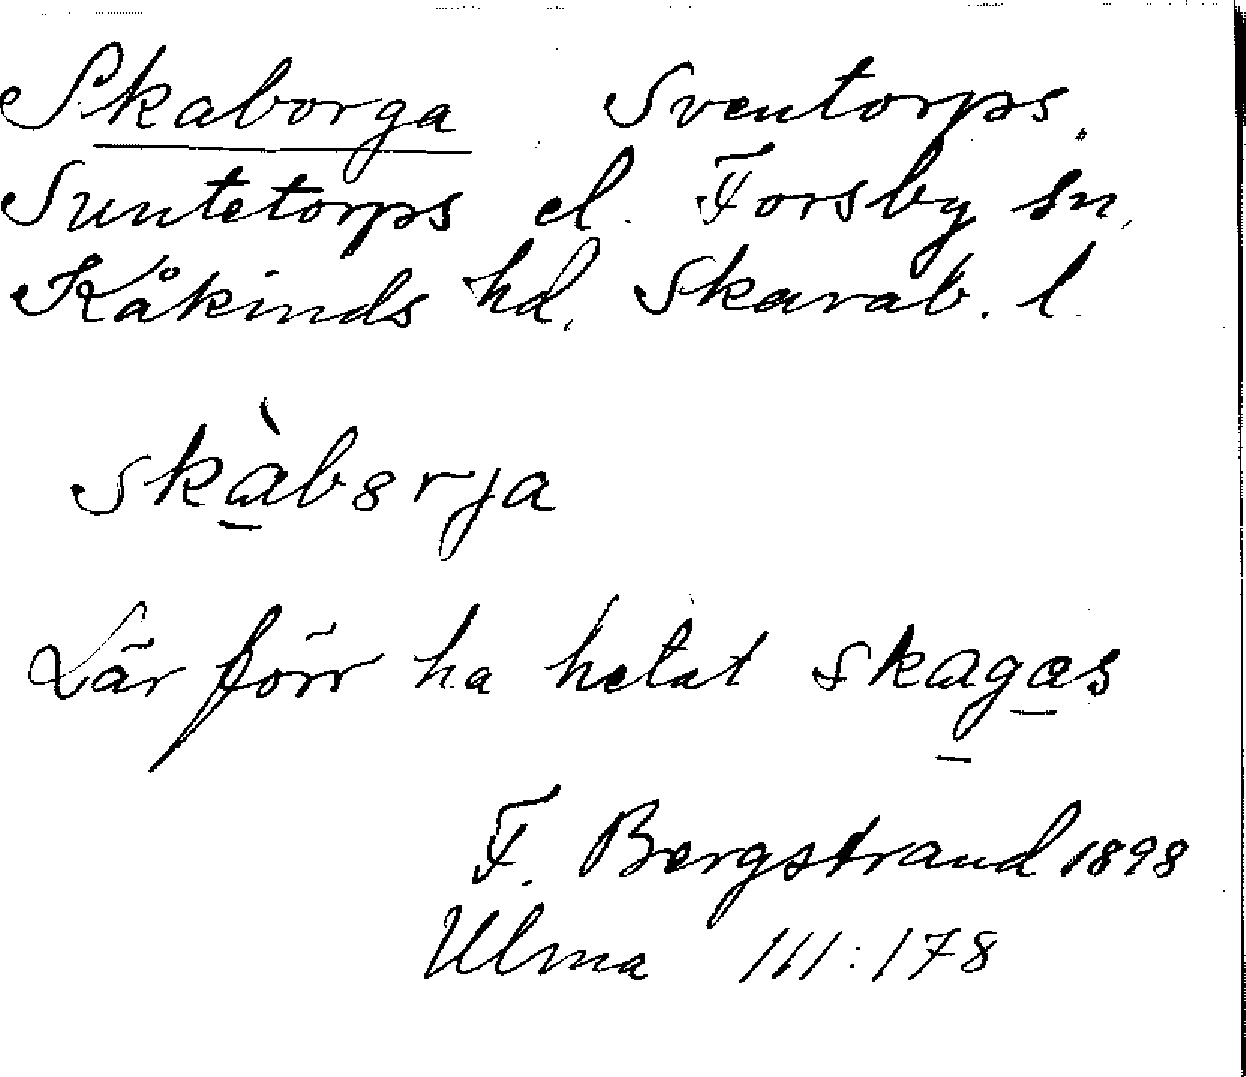 Skaborga Sventorps.
Suntetorps el. Forsby sn.
Kåkinds hd. Skarab. l.
skàbɜrja
Lär förr ha hetat skagas
F. Bergstrand 1898
Ulma 111:178